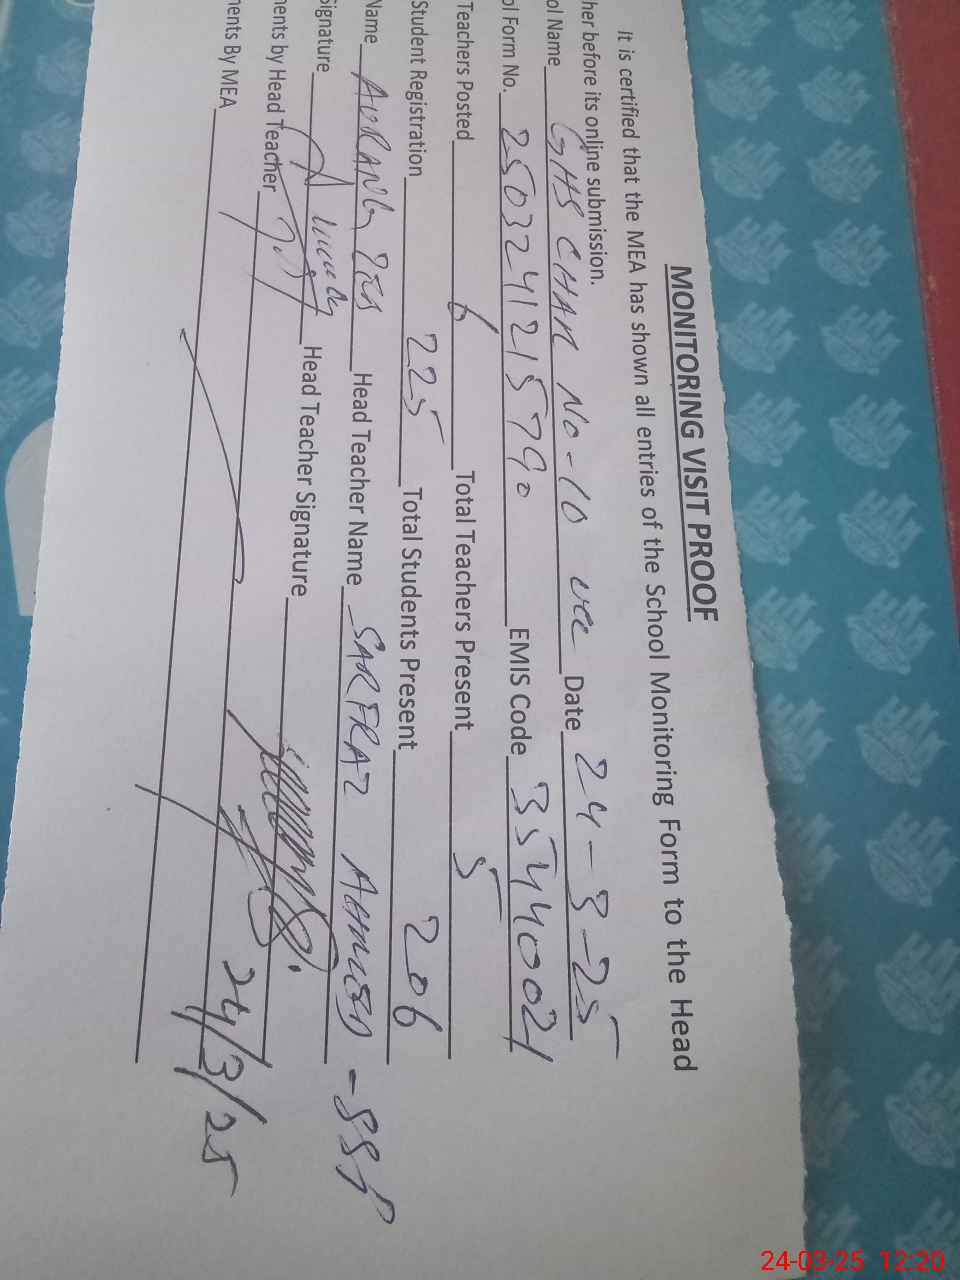 MONITORING VISIT PROOF
It is certified that the MEA has shown all entries of the School Monitoring Form to the Head
her before its online submission.
ol Name GHS CHAK No-10 Date 24-3-25
ol Form No. 2503241215790 EMIS Code 35440021
Teachers Posted 6 Total Teachers Present 5
Student Registration 225 Total Students Present 206
Name AURANG Head Teacher Name SARFRAZ AHMED - SST
Signature Head Teacher Signature
ments by Head Teacher
24/3/25
ments By MEA
24-03-25 12:20